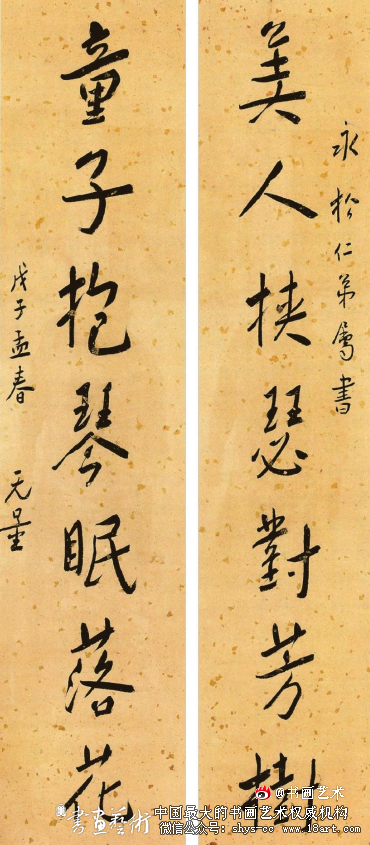 永松仁弟属書
美人挟瑟對芳樹
童子抱琴眠落花
戊子孟春 无量
@书画艺术
書畫藝術
中国最大的书画艺术权威机构
微信公众号：shys-cc www.18art.com